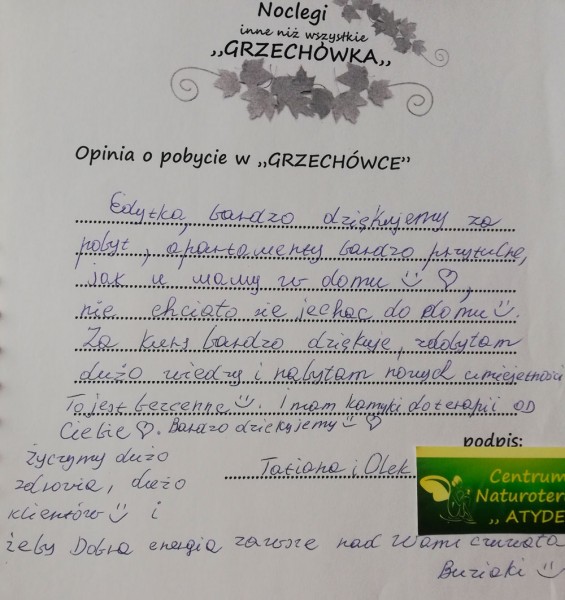 Noclegi
inne niż wszystkie
,,GRZECHÓWKA,,
Opinia o pobycie w ,,GRZECHÓWCE"
Edytka, bardzo dziękujemy za
pobyt, apartamenty bardzo przytulne,
jak u mamy w domu ☺ ♡,
nie chciało się jechać do domu ☺.
Za kurs bardzo dziękuję, zdobyłam
dużo wiedzy i nabyłam nowych umiejętności
To jest bezcenne ☺. I mam kamyki do terapii OD
Ciebie ♡. Bardzo dziękujemy ☺ ♡
podpis:
Życzymy dużo
Tatiana i Olek
zdrowia, dużo
klientów ☺ i
żeby Dobra energia zawsze nad Wami czuwała
Buziaki ☺
Centrum
Naturoter
,, ATYDE